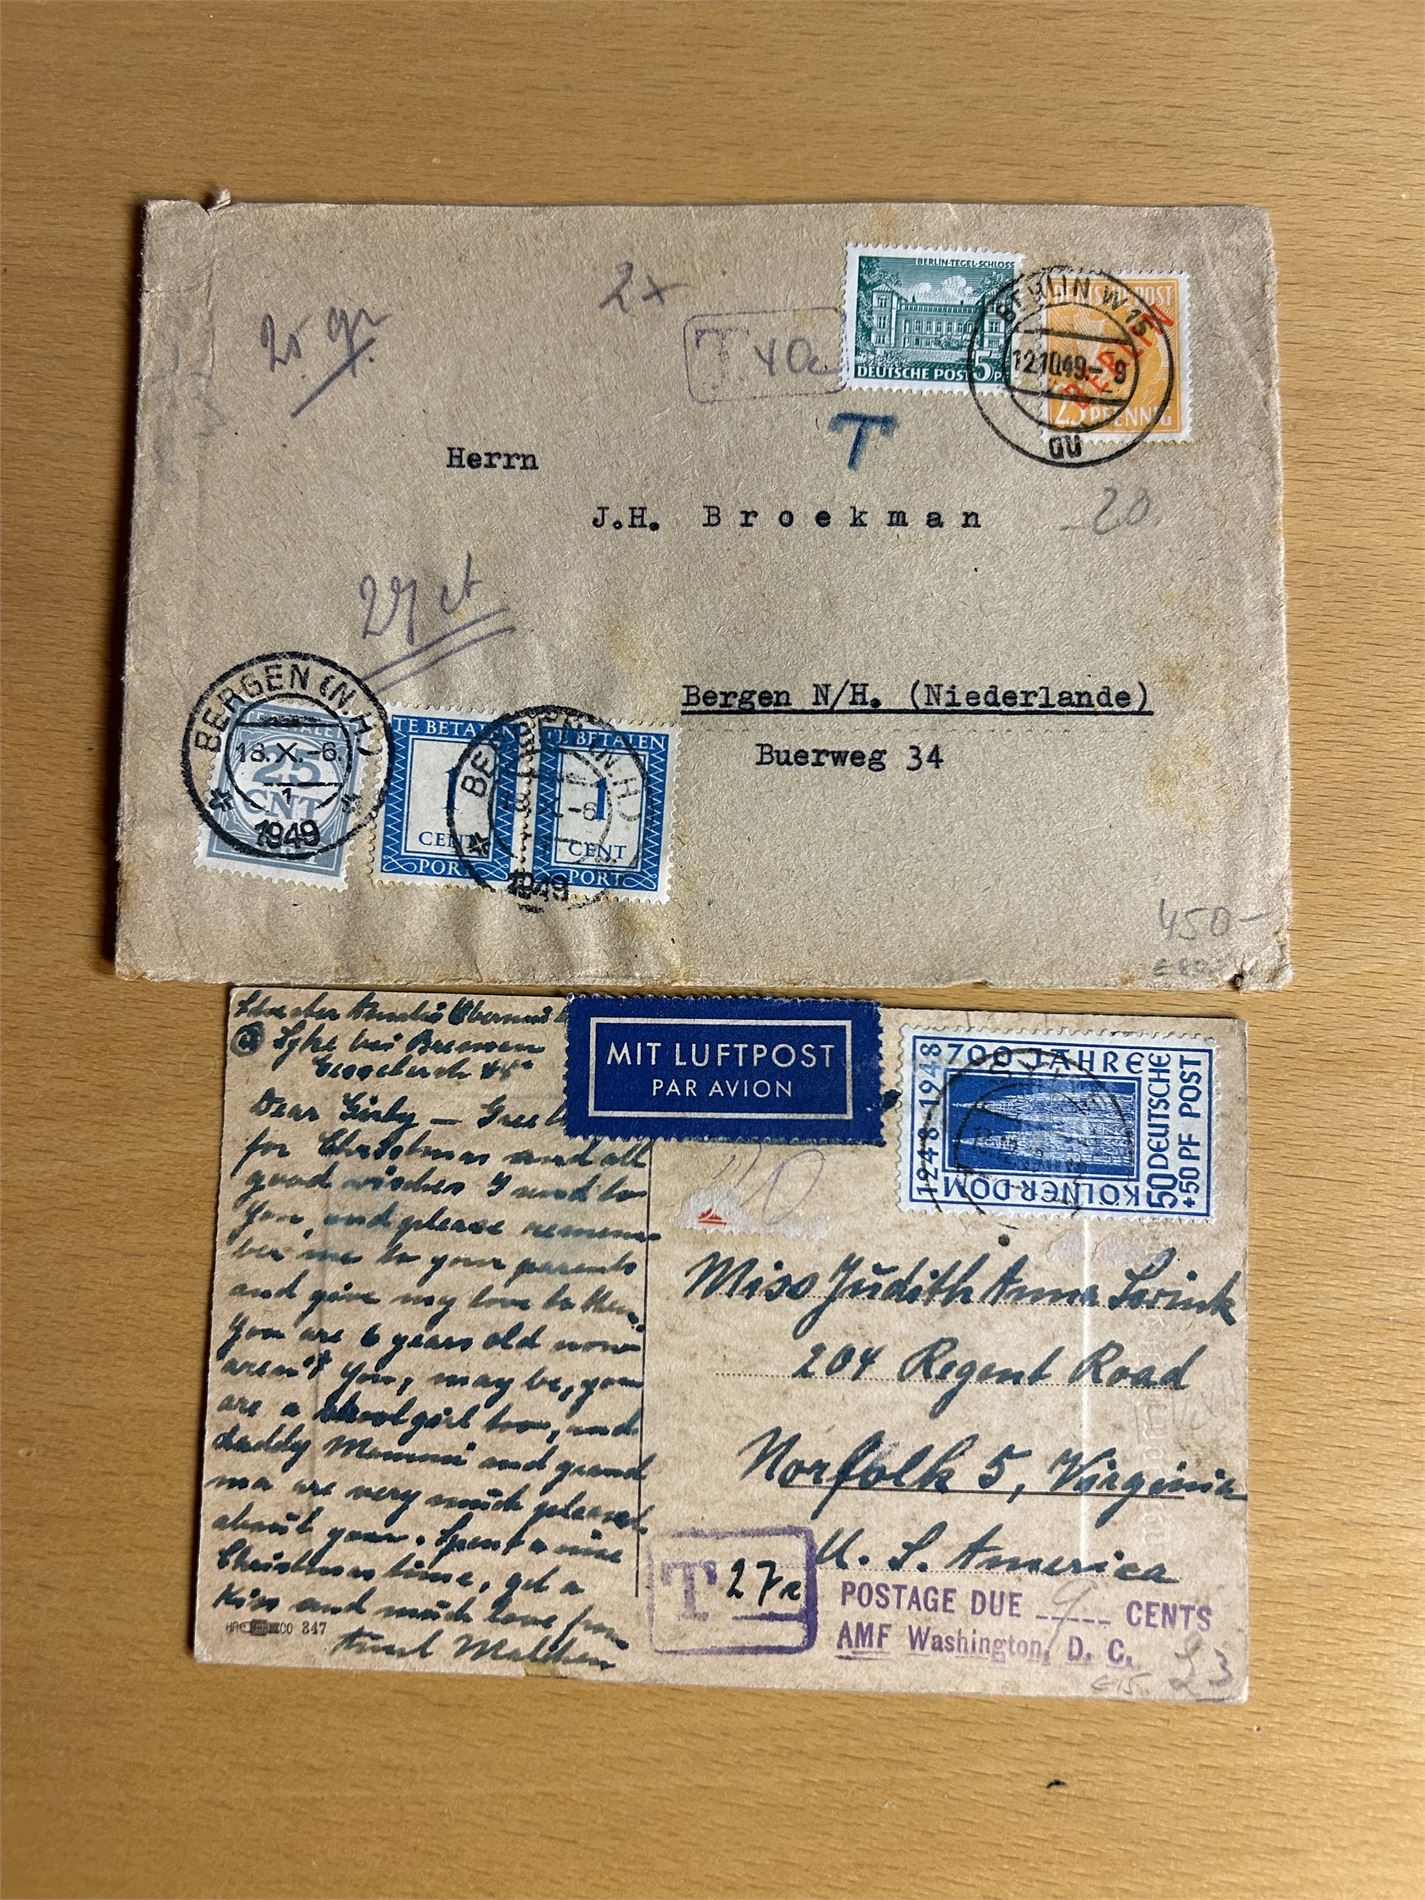 25 gr.
2x
T 40c
BERLIN-TEGEL-SCHLOSS
DEUTSCHE POST 5 PF
DEUTSCHE POST
BERLIN
25 PFENNIG
BERLIN W 15
12.10.49.-9
au
T
Herrn
J.H. Broekman
-20.
27 ct
Bergen N/H. (Niederlande)
Buerweg 34
BERGEN (N.H.)
18.X.-6.
1
1949
25
CNT
TE BETALEN
1
CENT
PORT
TE BETALEN
1
CENT
PORT
BERGEN (N.H.)
1949
450-
MIT LUFTPOST
PAR AVION
700 JAHRE
1248-1948
KÖLNER DOM
50 DEUTSCHE
+50 PF POST
Syke bei Bremen
Dear Girly —
for Christmas and all
good wishes I send to
you, and please remem-
ber me to your parents
and give my love to them.
You are 6 years old now
aren't you, may be, you
are a schoolgirl too, and
daddy Mommi and grand
ma are very much pleased
about you. Spent a nice
Christmas time, get a
Kiss and much love from
347
Miss Judith Anna
204 Regent Road
Norfolk 5, Virginia
U. S. America
T 27c
POSTAGE DUE 9 CENTS
AMF Washington, D. C.
€15.
£3